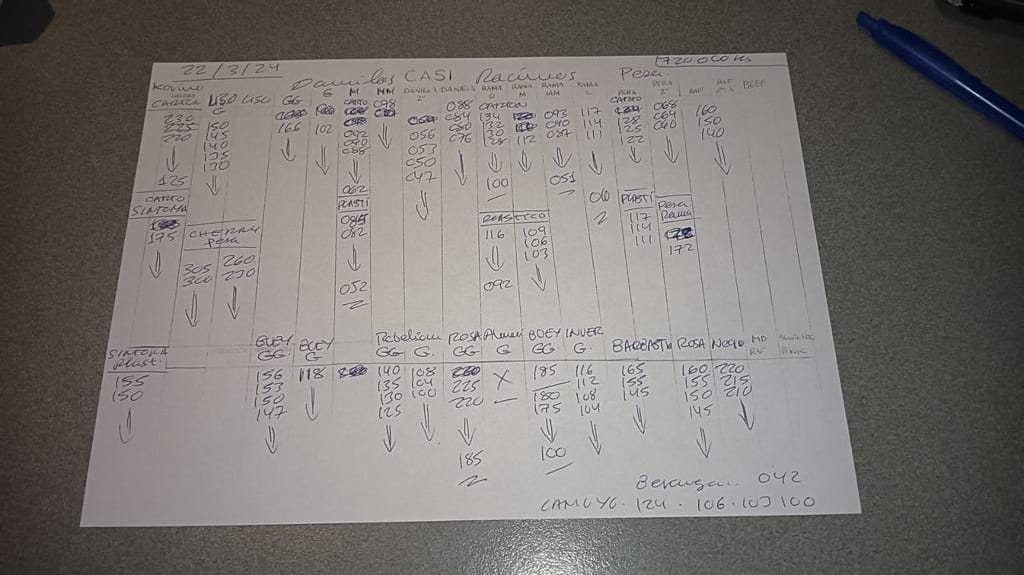 22/3/24 Danielas CASI Racimos Pera. 720.000 Ks
LISO LISO GG G M MM DANIELA 2ª DANIELA RAMA G RAMA M RAMA MM RAMA PERA PERA 2ª RAF RAF 2ª BEEF
CARTON G CARTON CARTON
098 088
230 150 166 102 056 084 134 093 117 128 068 160
225 145 092 053 080 132 112 090 114 125 064 150
220 140 090 050 076 130 087 111 122 060 140
135 088 047 128
130
125 062 100 051 060
CARTO PLASTI PLASTICO PLASTI Pera
SINTONA Rama
175 CHERRY 085 116 109 117
Pera 082 106 114
103 111 172
305 260
300 230
052 092
SINTONA BUEY BUEY Rebelion ROSA BUEY INVER BARBASTR ROSA Negro MD
Plast. GG G GG G. GG G GG G. RAF
155 156 118 140 108 X 185 116 165 160 220
150 153 135 104 225 112 155 155 215
150 130 100 220 180 108 145 150 210
147 125 175 104 145
185 100
Berenjen. 042
CAMUYO. 124. 106. 103 100